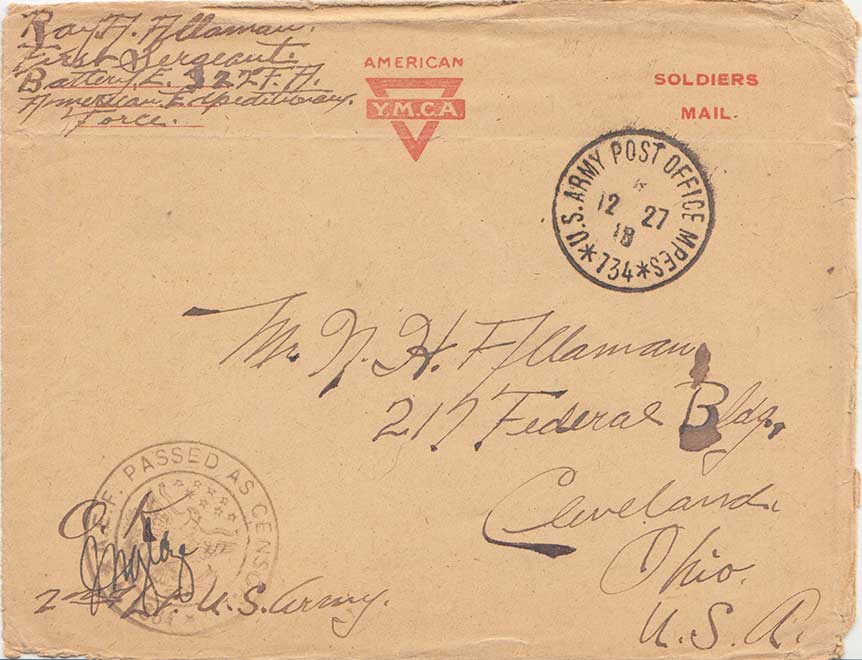 Ray H. Allaman.
First Sergeant.
Battery E. 322 F.A.
American Expeditionary
Force.
AMERICAN
Y.M.C.A.
SOLDIERS
MAIL
U.S. ARMY POST OFFICE MPES
12 27
18
*734*
Mr. N. H. Allaman
217 Federal Bldg,
Cleveland,
Ohio.
U.S.A.
E.F. PASSED AS CENSO
O.K.
2nd Lt. U.S. Army.